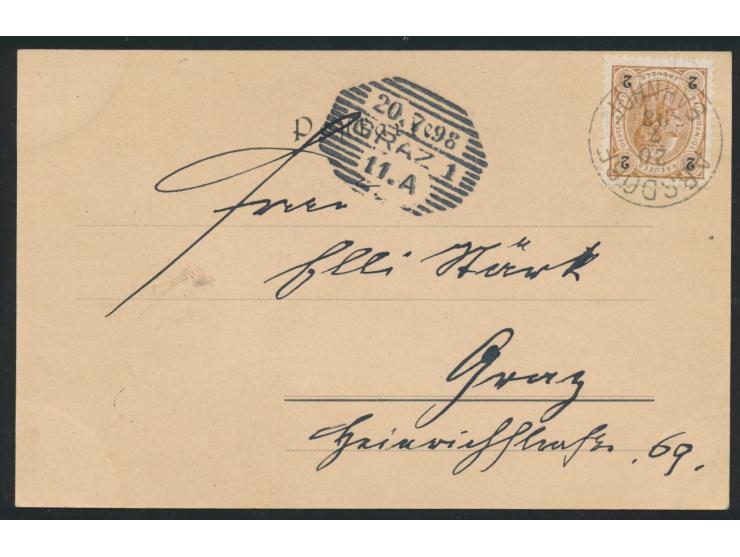 20.7.98
GRAZ 1
11.A
2 2
KREUZER
2 2
Frau
Elli Stärk
Graz
Heinrichstraße 69.